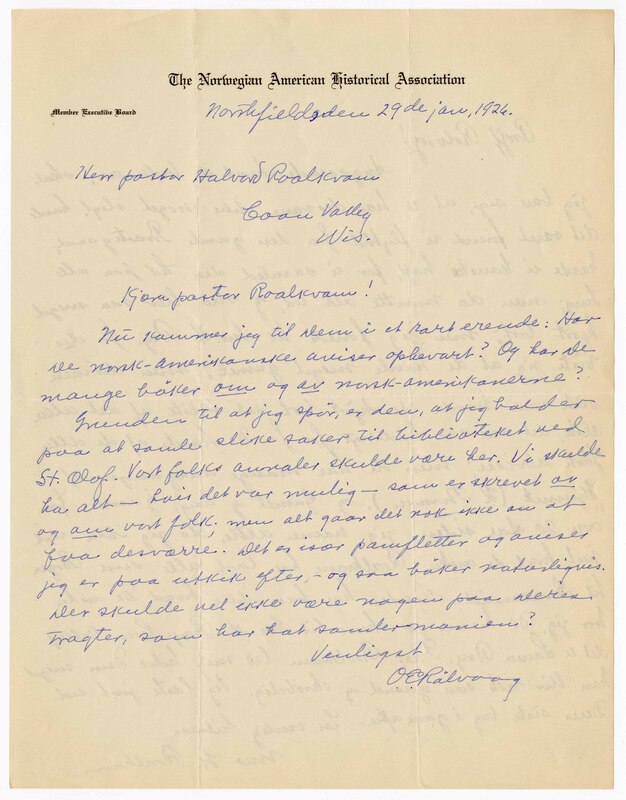 The Norwegian American Historical Association
Member Executive Board
Northfield, den 29de jan, 1926.
Herr pastor Halvard Roalkvam
Coon Valley
Wis.
Kjære pastor Roalkvam!
Nu kommer jeg til Dem i et rart erende: Har
De norsk-amerikanske aviser opbevart? Og har De
mange bøker om og av norsk-amerikanerne?
Grunden til at jeg spør, er den, at jeg holder
paa at samle slike saker til biblioteket ved
St. Olaf. Vort folks annaler skulde være her. Vi skulde
ha alt – hvis det var mulig – som er skrevet av
og om vort folk; men alt gaar det nok ikke an at
faa desværre. Det er især pamfletter og aviser
jeg er paa utkik efter, – og saa bøker naturligvis.
Der skulde vel ikke være nogen paa Deres
tragter, som har hat samlermanien?
Venligst
O.E. Rølvaag